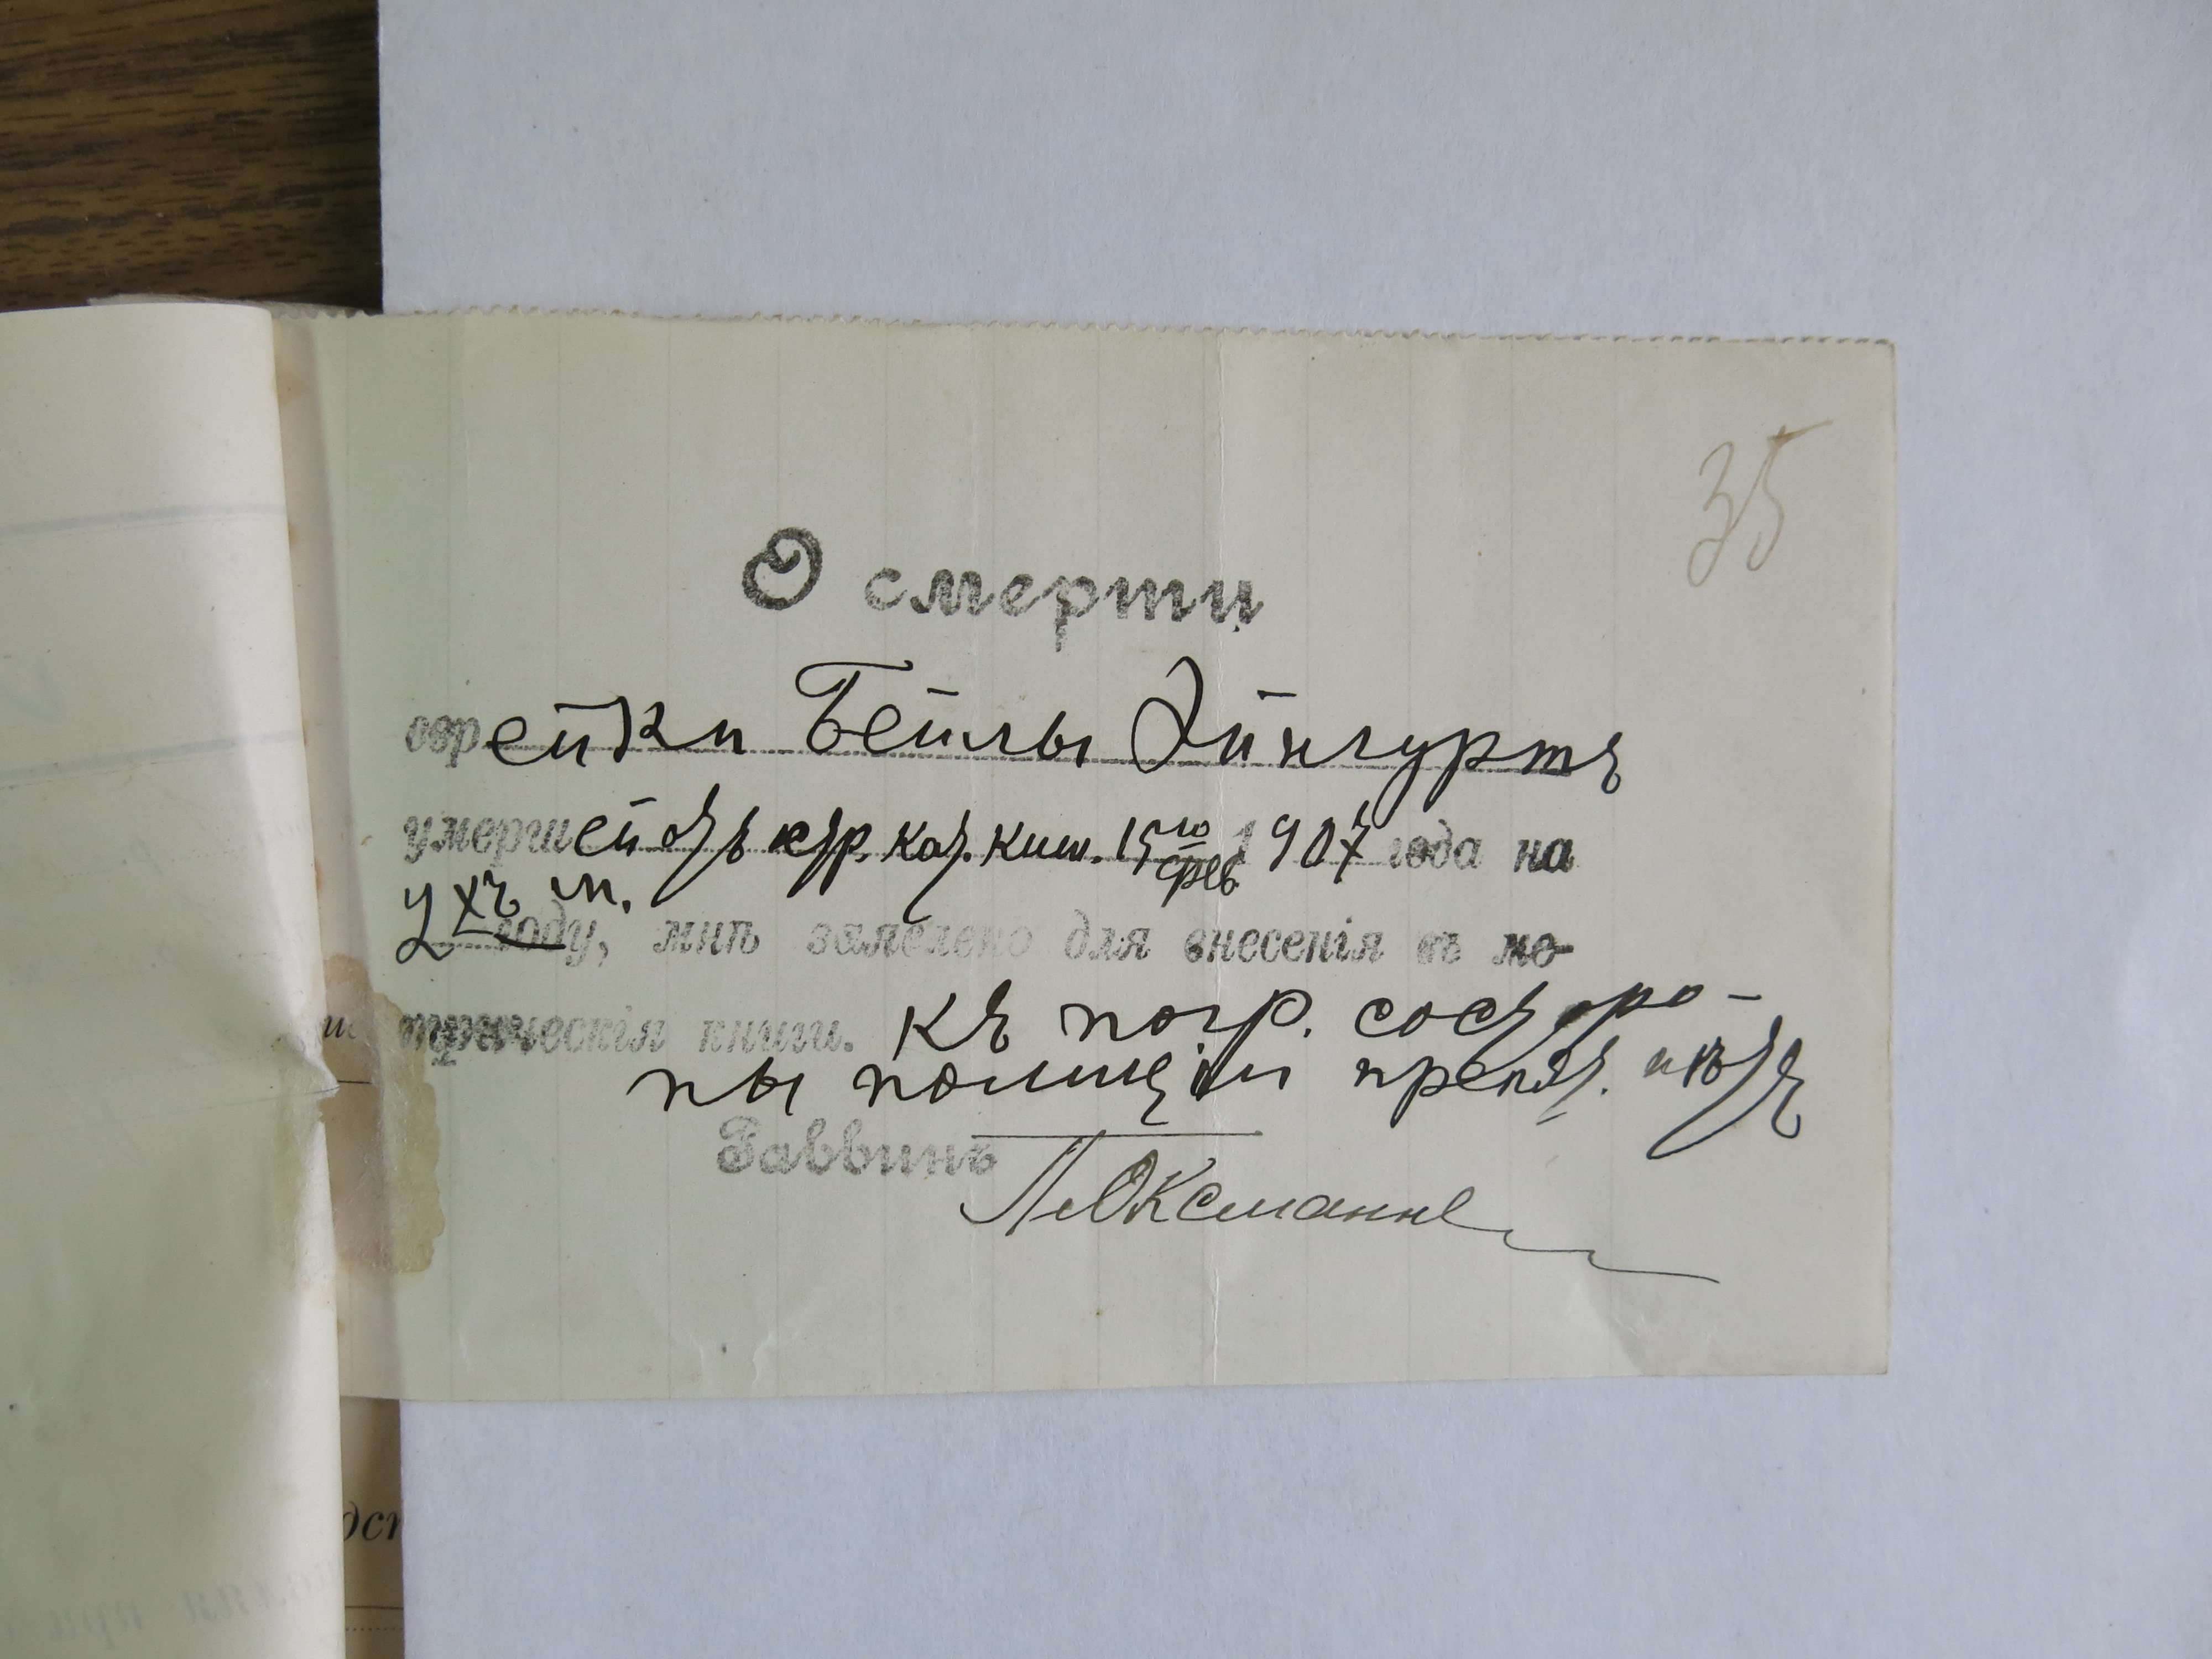 35
О смерти
еврейки Бейлы Эйнгуртъ
умершей отъ кр. кат. киш. 15го фев. 1907 года на
2хъ м. году, мнѣ заявлено для внесенія въ ме-
трическія книги. Къ погр. состоро-
ны полиціи препят. нѣтъ
Раввинъ
Л. Оксманъ